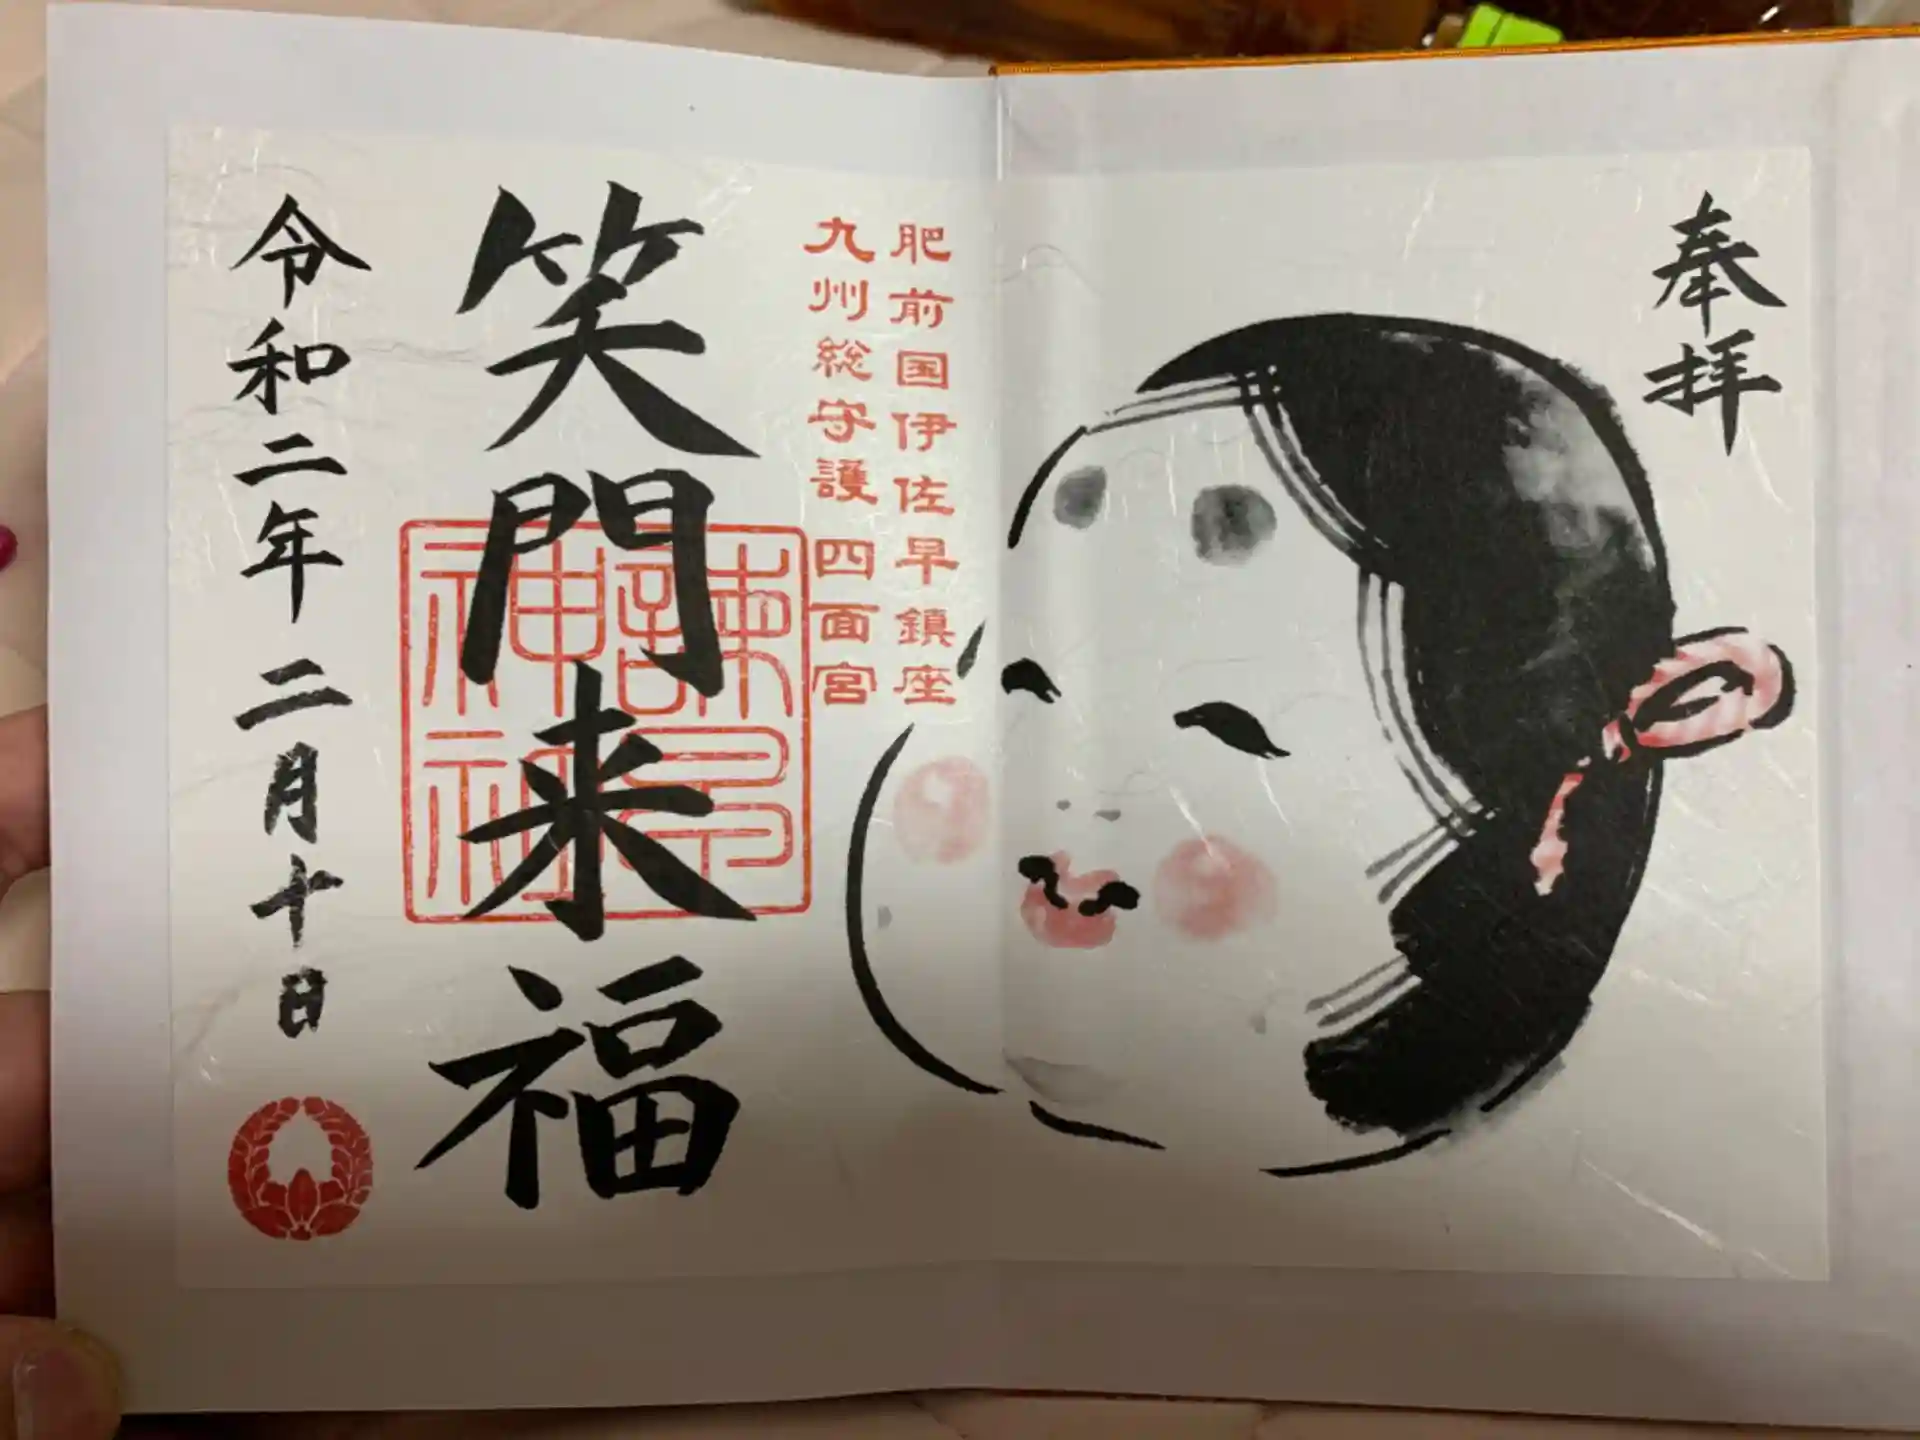 奉拝
肥前国伊佐早鎮座
九州総守護 四面宮
笑門来福
諫早
神社
令和二年 二月十日